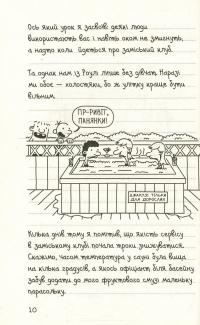 Ось який урок я засвоїв: деякі люди
використають вас і навіть оком не змигнуть,
а надто коли йдеться про заміський клуб.
Та однак нам із Роулі ліпше без дівчат. Наразі
ми обоє – холостяки, бо ж улітку краще бути
вільним.
ПР-РИВІТ,
ПАНЯНКИ!
ДЖАКУЗІ ТІЛЬКИ
ДЛЯ ДОРОСЛИХ
Кілька днів тому я помітив, що якість сервісу
в заміському клубі почала трохи знижуватися.
Скажімо, часом температура у сауні була вища
на кілька градусів, а якось офіціант біля басейну
забув додати до мого фруктового смузі маленьку
парасольку.
10